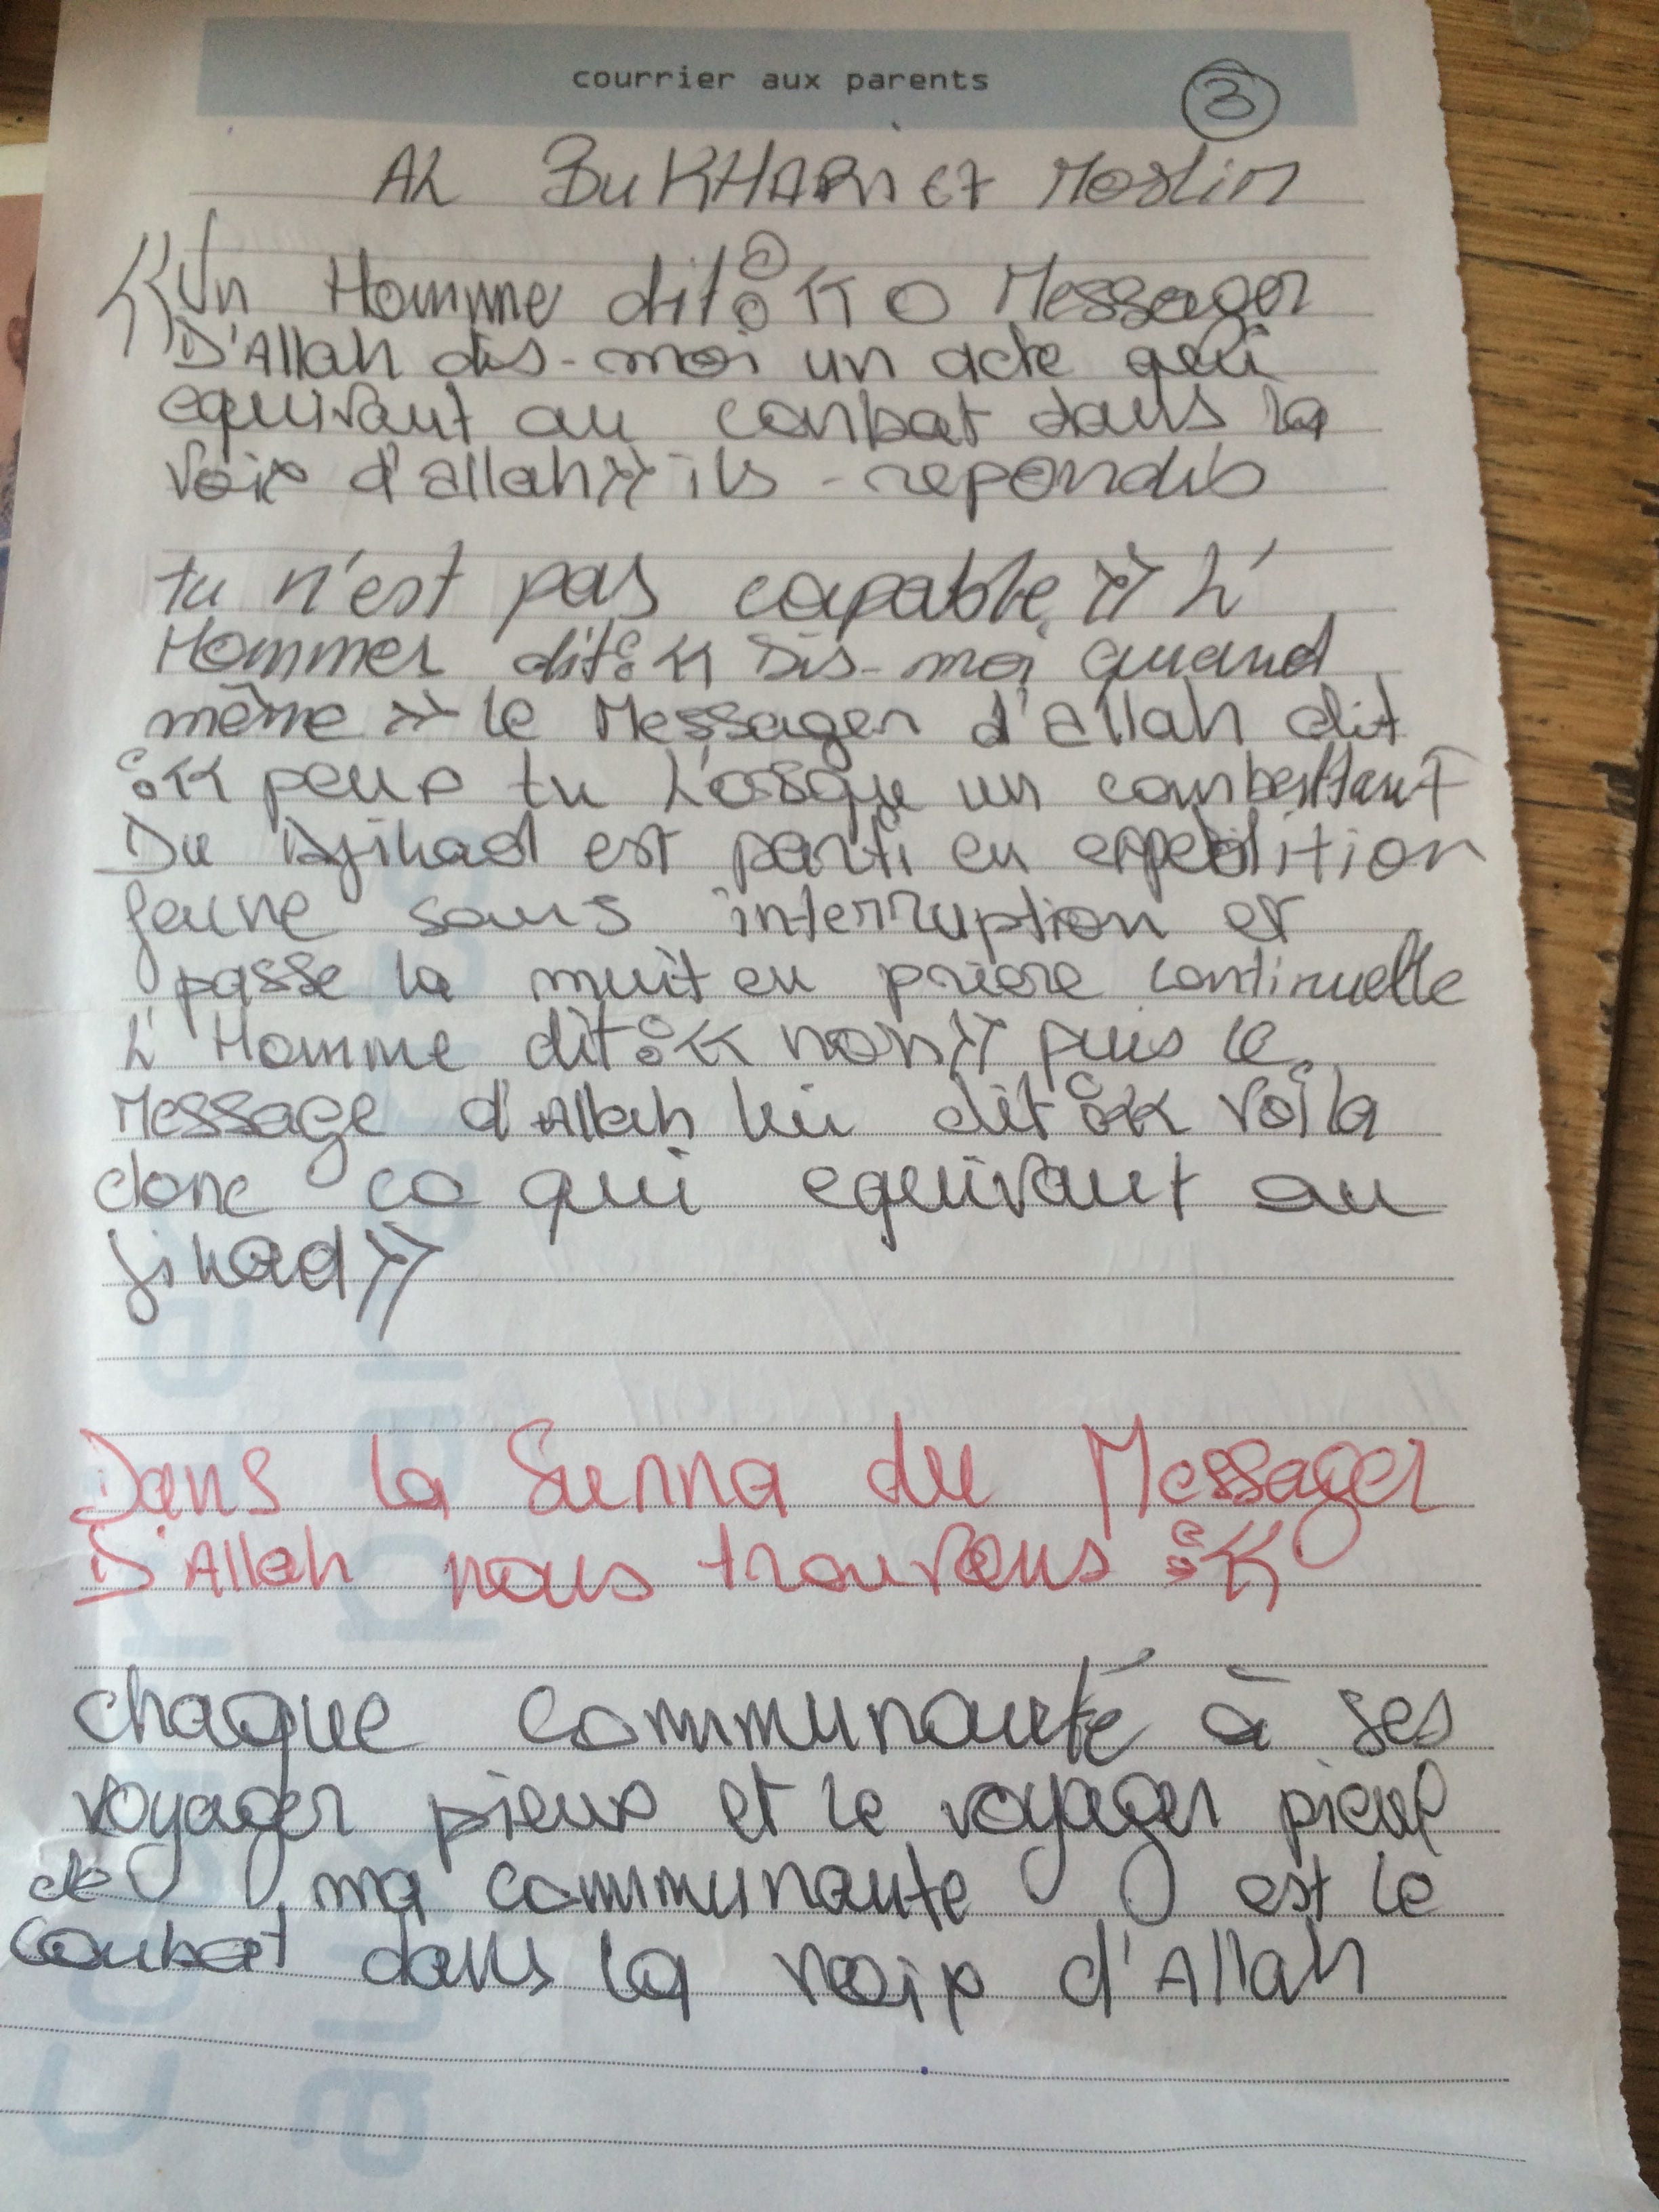 courrier aux parents
3
AL BuKHARi ET Moslim
« Un Homme dit : « O Messager
D'Allah dis-moi un acte qui
equivaut au conbat dans la
voix d'allah » ils - repondis
tu n'est pas capable, » L'
Hommer dit : « Dis-moi quand
même » le Messager d'allah dit
: « peux tu L'orsque un combattant
Du Djihad est parti en expedition
jeune sans interruption et
passe la nuit en priere continuelle
L'Homme dit : « non » puis le
Message d'Allah lui dit : « voila
donc ca qui equivaut au
jihad »
Dans la Sunna du Messager
D'Allah nous trouvons : «
chaque communauté à ses
voyager pieux et le voyager pieux
de ma communaute est le
conbat dans la voix d'Allah